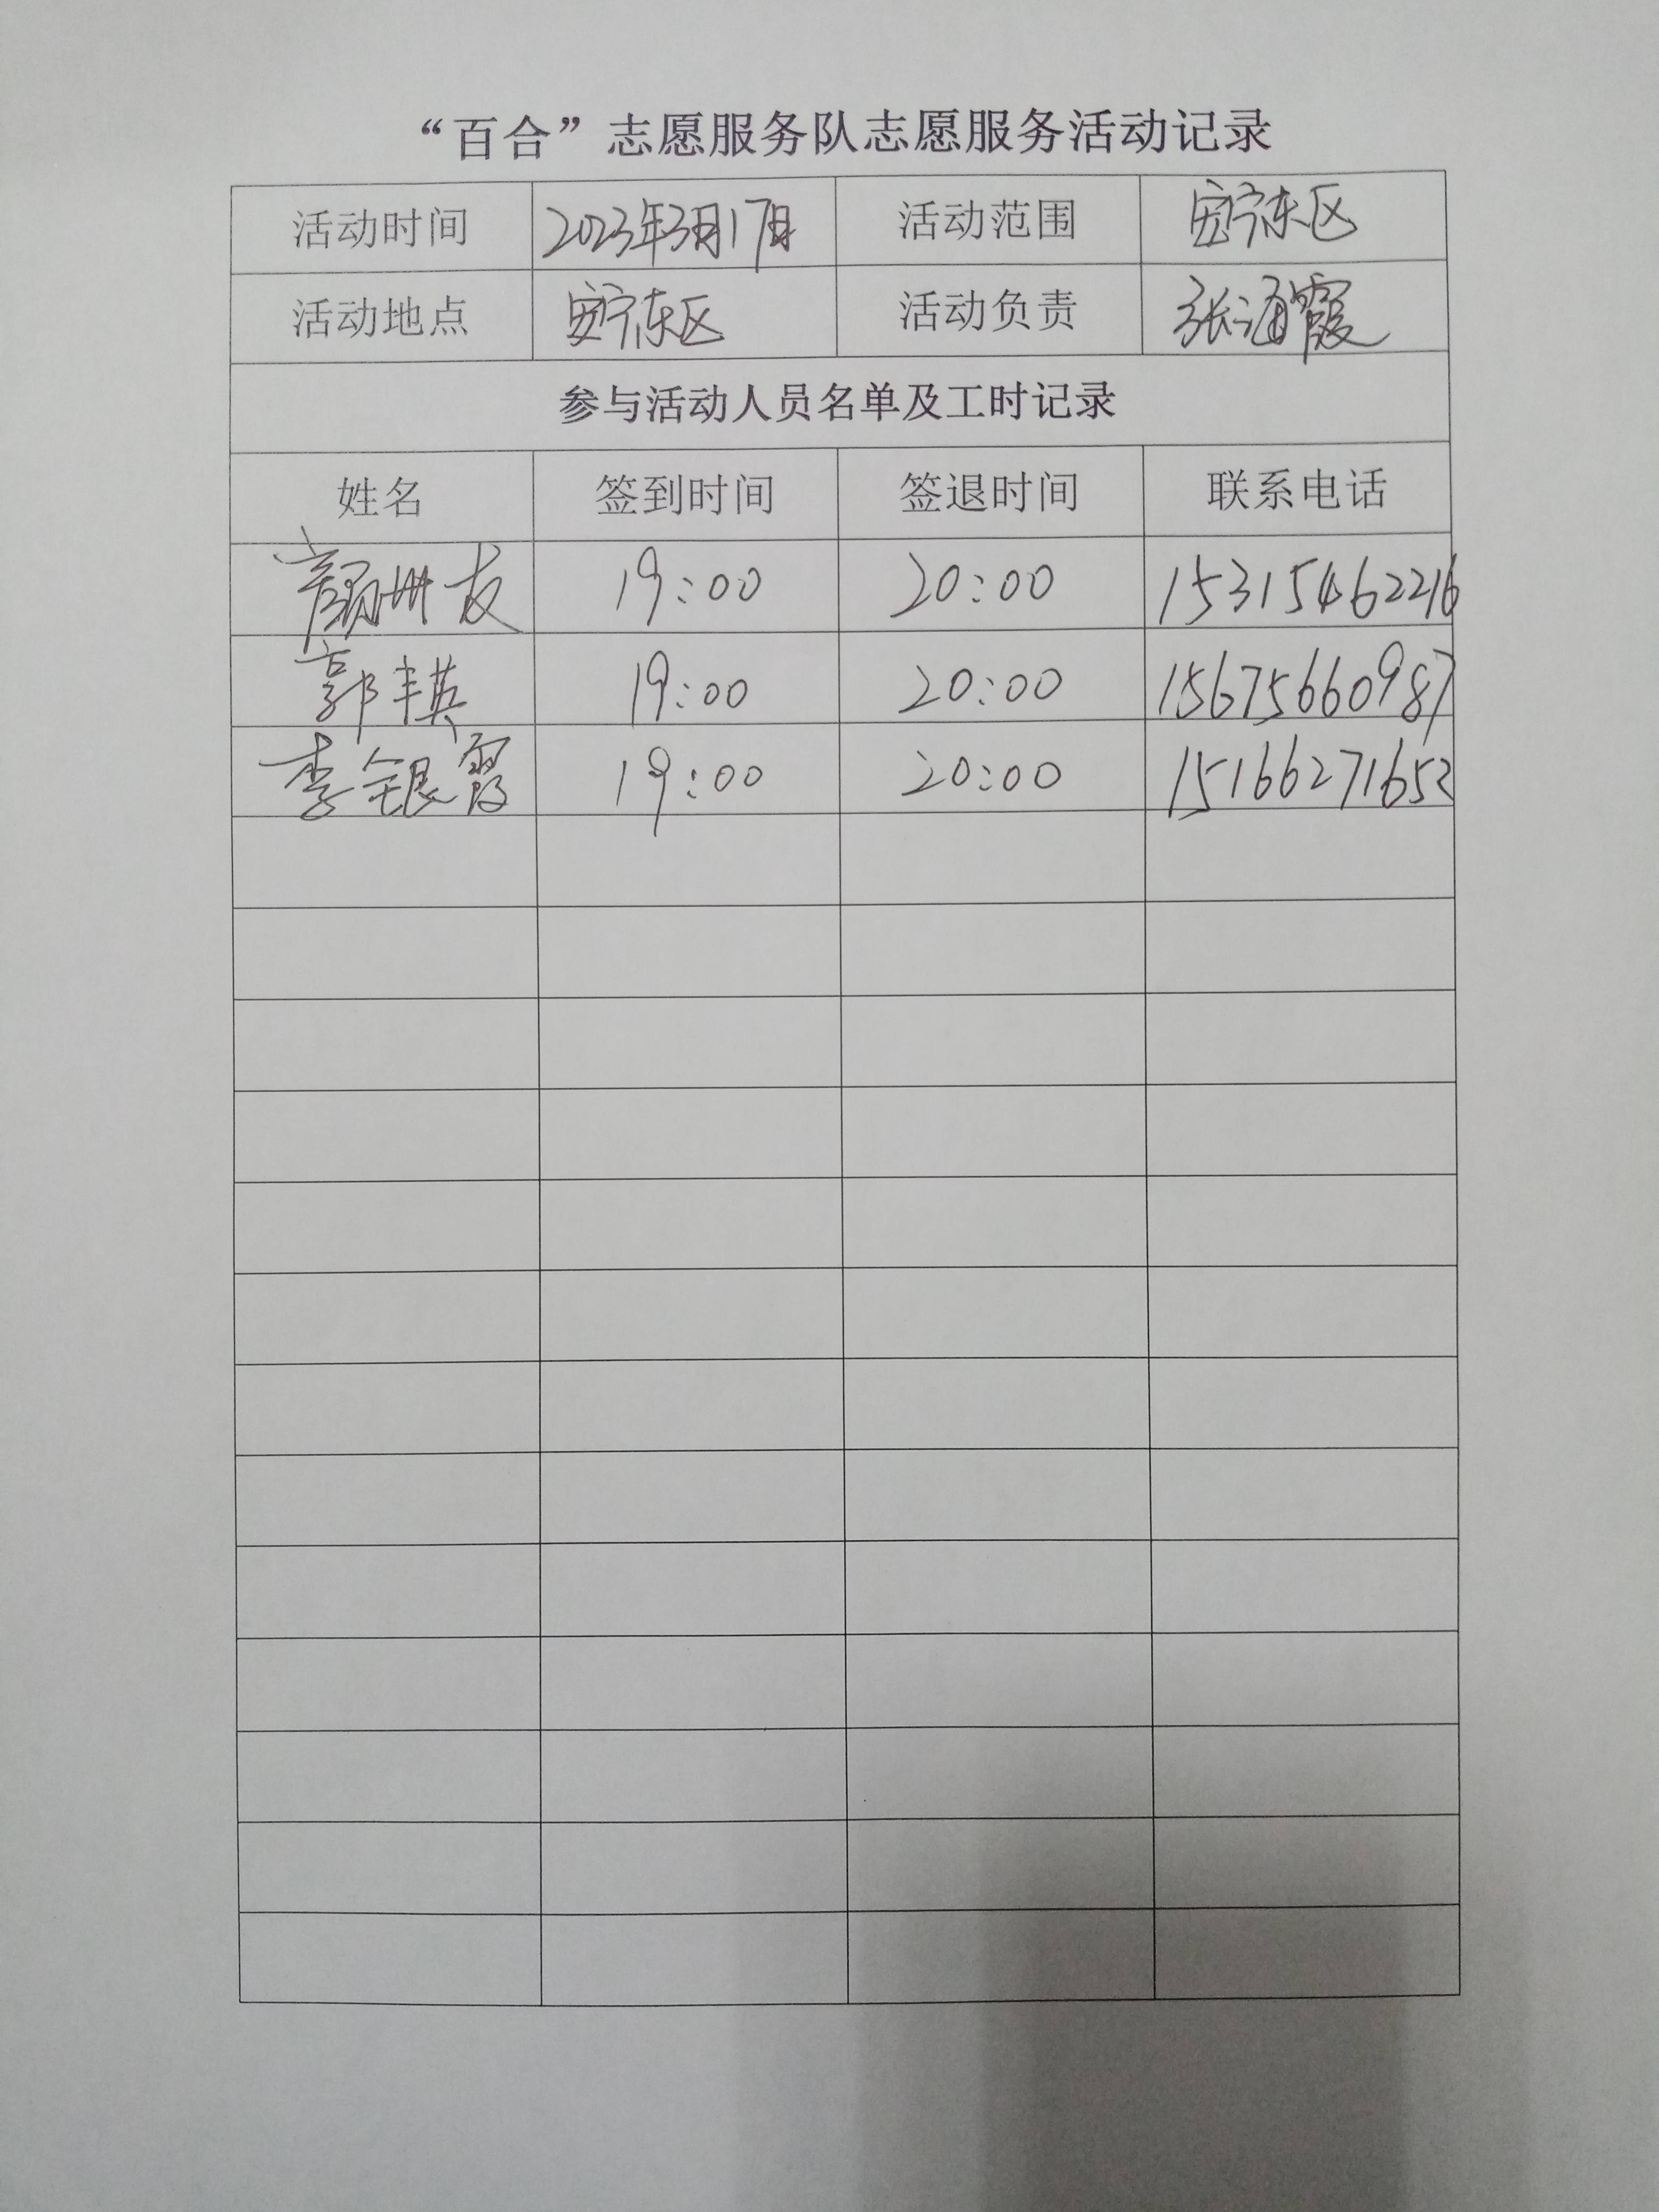 “百合”志愿服务队志愿服务活动记录
活动时间 2023年3月17日 活动范围 安宁东区
活动地点 安宁东区 活动负责 张海霞
参与活动人员名单及工时记录
姓名 签到时间 签退时间 联系电话
颜世友 19:00 20:00 15315462216
郭丰英 19:00 20:00 15675660987
李银霞 19:00 20:00 15166271652